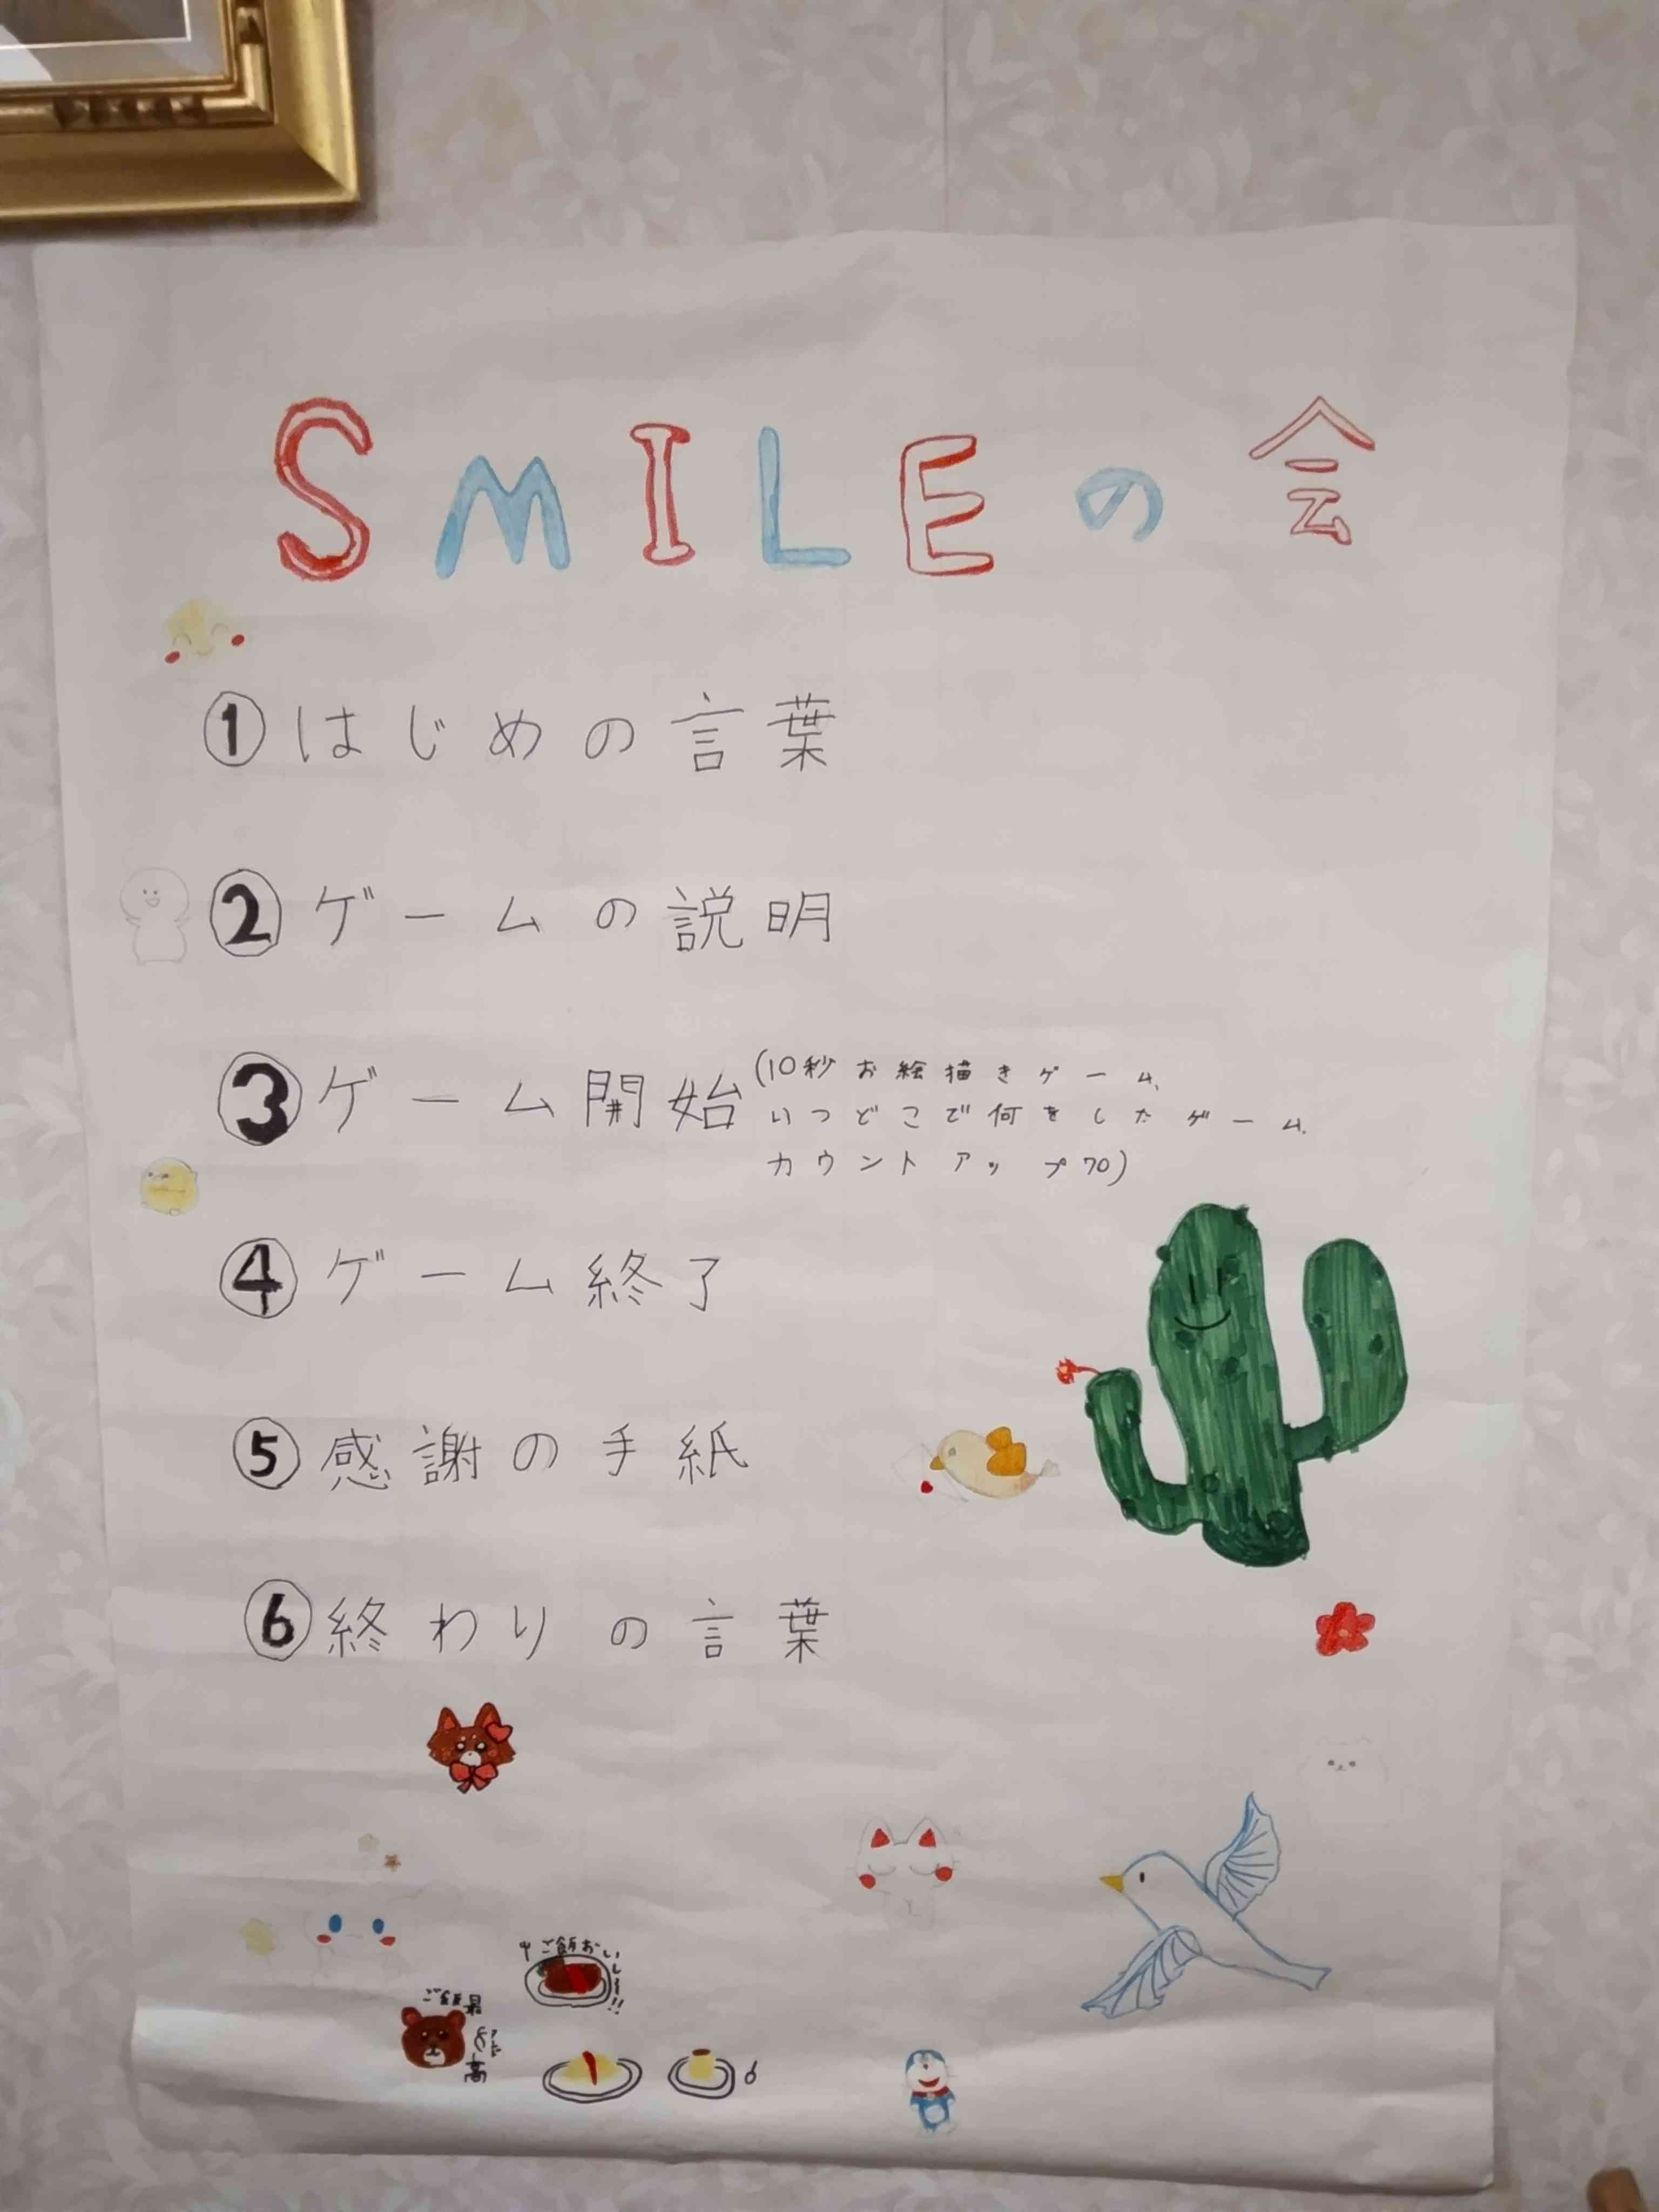 SMILEの会
①はじめの言葉
②ゲームの説明
③ゲーム開始(10秒お絵描きゲーム、
いつどこで何をしたゲーム、
カウントアップ70)
④ゲーム終了
⑤感謝の手紙
⑥終わりの言葉
ご飯おいしー!!
ご飯最高